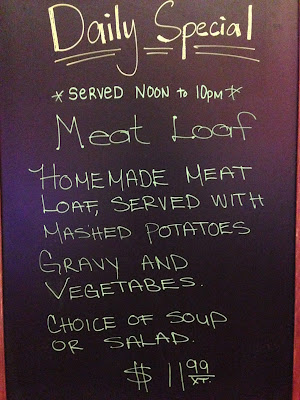 Daily Special
*SERVED NOON to 10pm*
Meat Loaf
HOMEMADE MEAT
LOAF, SERVED WITH
MASHED POTATOES
GRAVY AND
VEGETABES.
CHOICE OF SOUP
OR SALAD.
$ 11.99
XT.